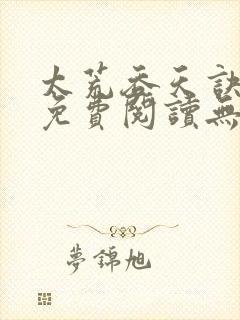 太荒吞天訣
免費閱讀無
夢錦旭